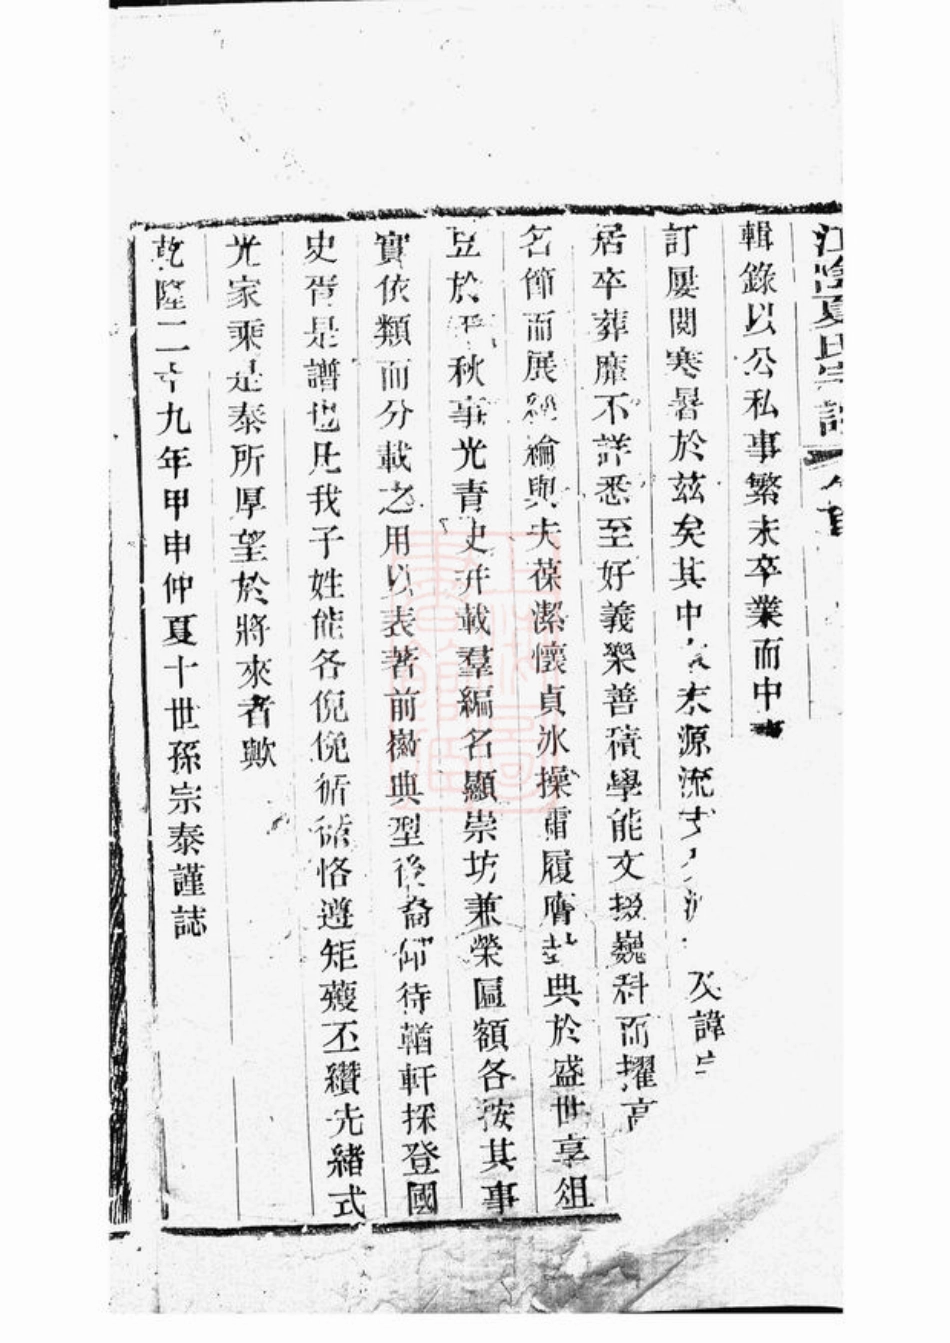 江陰夏氏宗譜 卷首
輯錄以公私事繁未卒業而中
訂屢閱寒暑於茲矣其中 末源流支 派 及諱
居卒葬靡不詳悉至好義樂善積學能文掇巍科而擢高
名節而展經綸與夫葆潔懷貞冰操霜履膺 典於盛世享俎
豆於千秋事光青史並載羣編名顯崇坊兼榮匾額各按其事
實依類而分載之用以表著前徽典型後裔仰待輶軒採登國
史胥是譜也凡我子姓能各俛俛循循恪遵矩矱丕纘先緒式
光家乘是泰所厚望於將來者歟
乾隆二十九年甲申仲夏十世孫宗泰謹誌
上海圖書館藏